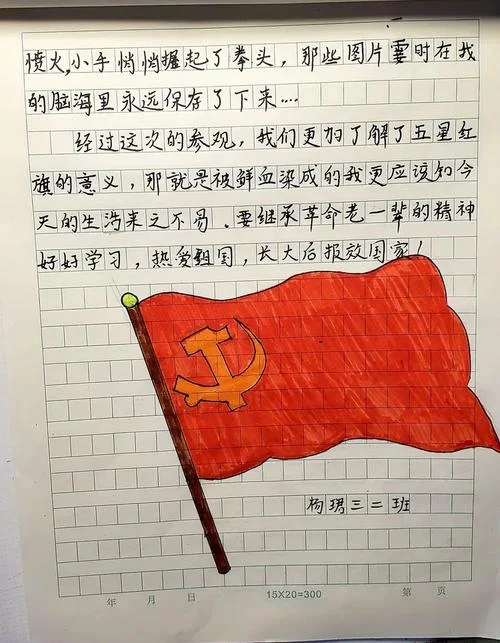 愤火,小手悄悄握起了拳头，那些图片霎时在我
的脑海里永远保存了下来…
经过这次的参观，我们更加了解了五星红
旗的意义，那就是被鲜血染成的我更应该知今
天的生活来之不易.要继承革命老一辈的精神
好好学习，热爱祖国，长大后报效国家！
杨珺三二班
年 月 日 15X20=300 第 页